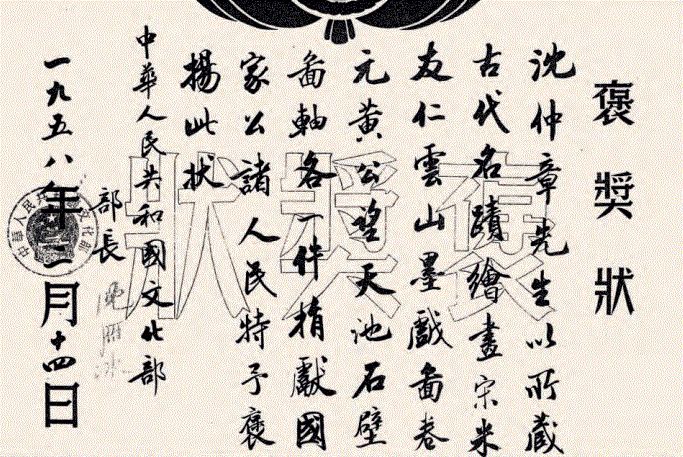 褒獎狀
沈仲章先生以所蔵
古代名蹟繪畫宋米
友仁雲山墨戲畵卷
元黃公望天池石壁
畵軸各一件捐獻國
家公諸人民特予褒
揚此狀
中華人民共和國文化部
部長
一九五八年二月十四日
褒獎狀